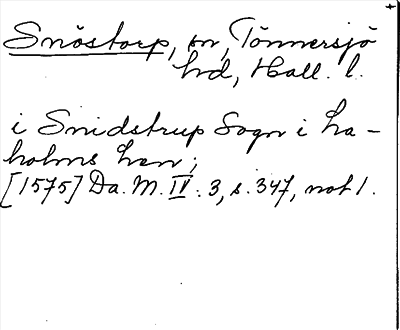 Snöstorp, sn, Tönnersjö
hd, Hall. l.
i Snidstrup Sogn i La-
holms Len;
[1575] Da. M. IV. 3, s. 347, not 1.